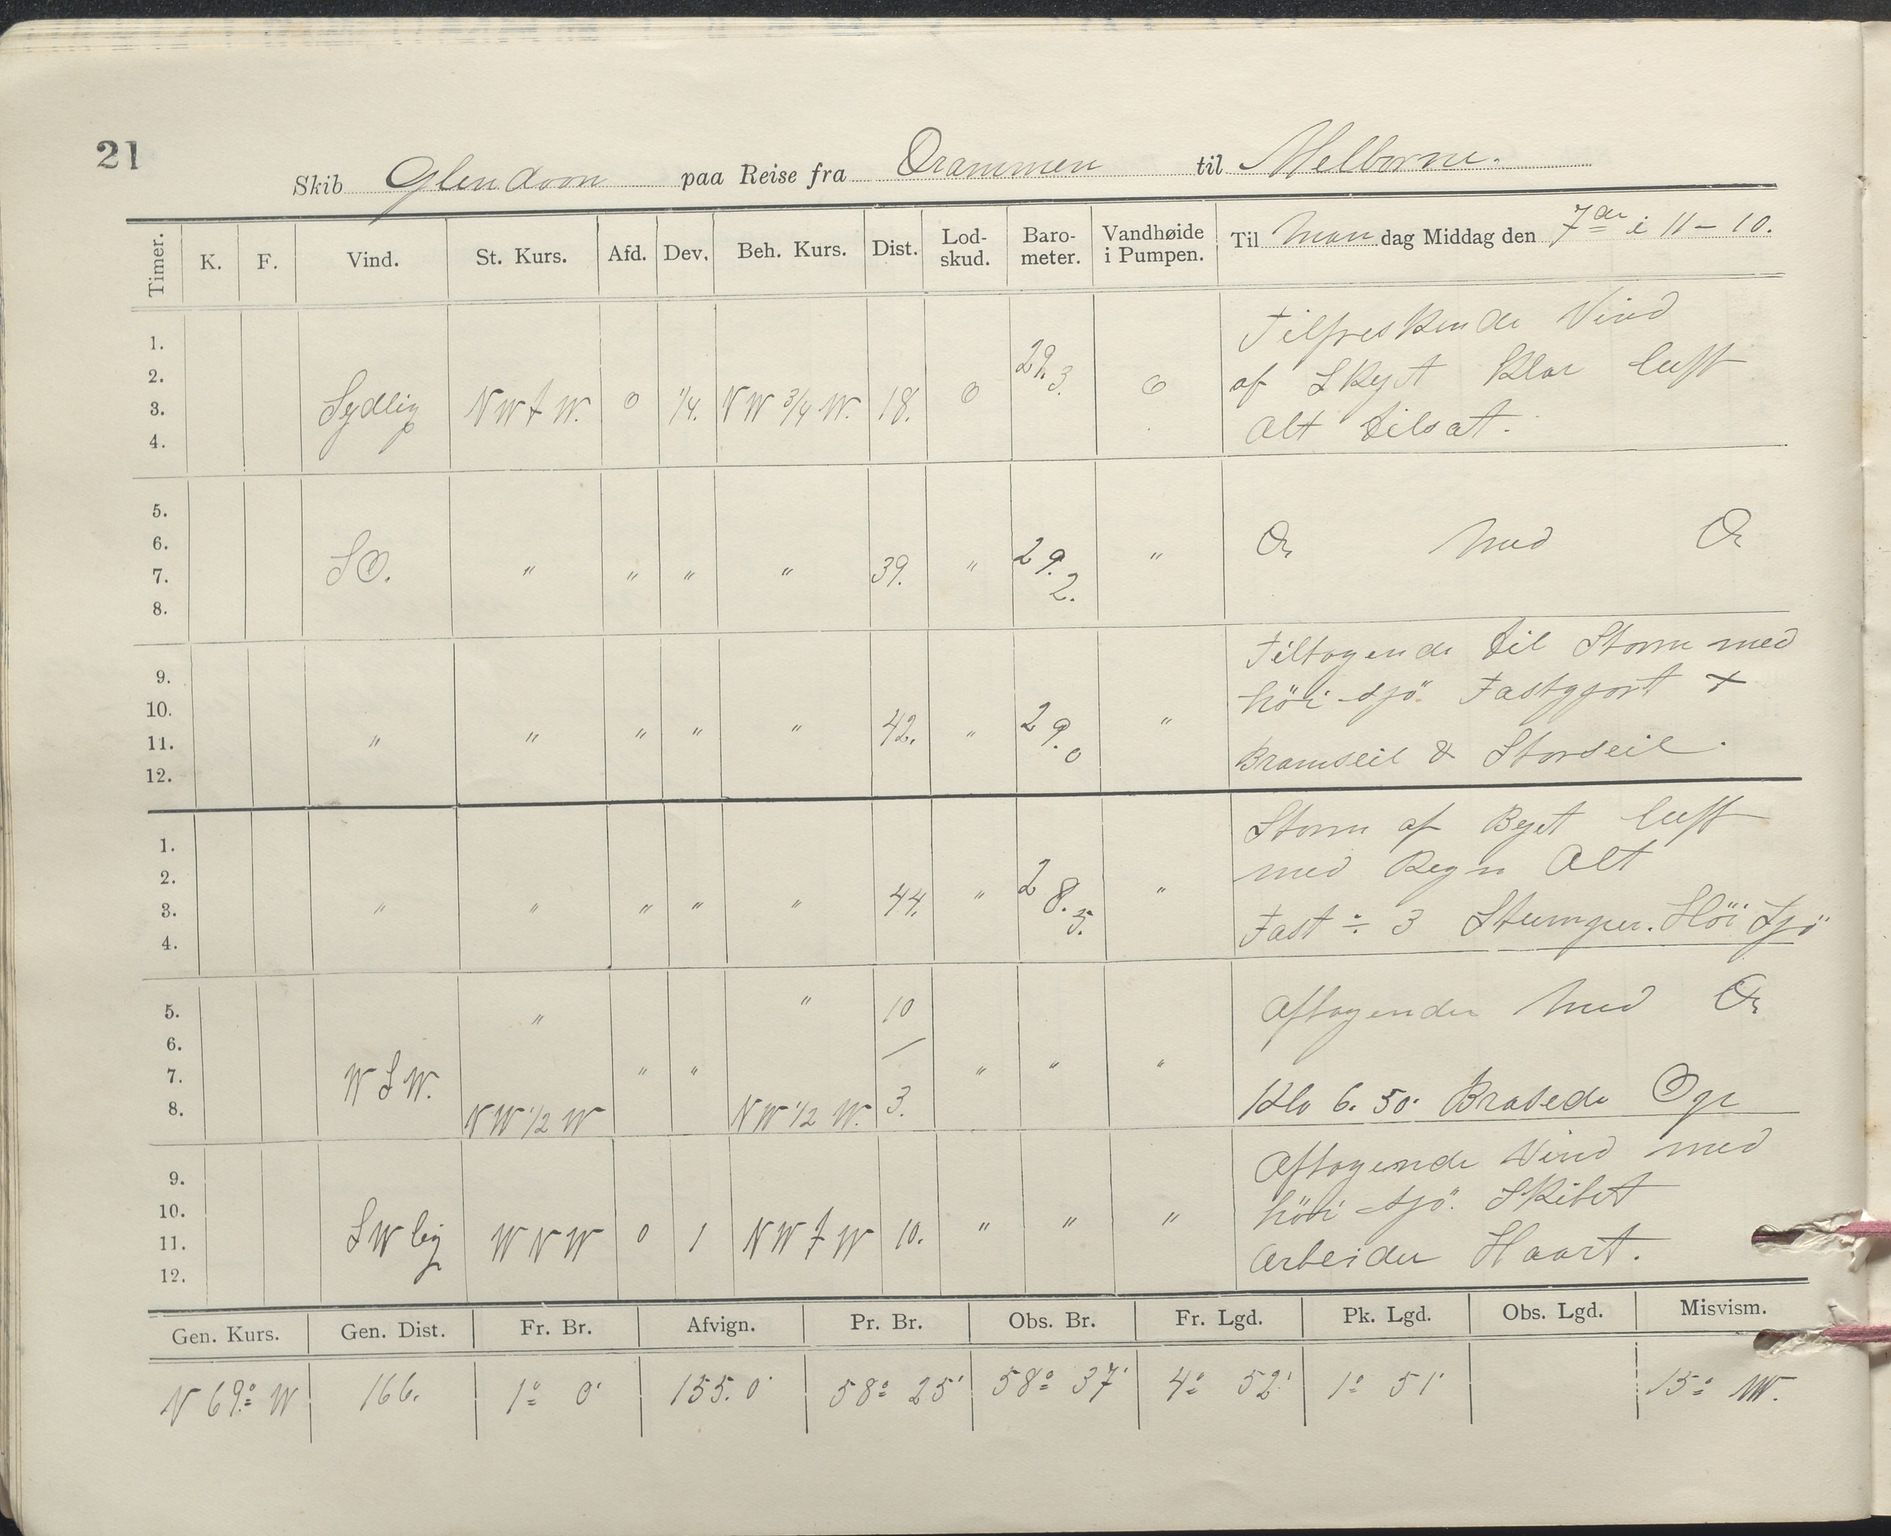 21
Skib Glendoon paa Reise fra Drammen til Melborne.
Timer. K. F. Vind. St. Kurs. Afd. Dev. Beh. Kurs. Dist. Lod-skud. Baro-meter. Vandhøide i Pumpen. Til Man dag Middag den 7de i 11 – 10.
1. Tilfreskende Vind
2. 29.3. af Skyet Klar luft
3. Sydlig NW t W. 0 1/4. NW 3/4 W. 18. 0 0 Alt tilsat.
4.
5.
6. Do med Do
7. SO. " " " " 39. " 29.2. "
8.
9. Tiltagende til Storm med
10. höi sjö Fastgjort +
11. " " " " " 42. " 29.0 " Bramseil & Storseil.
12.
1. Storm af Byet luft
2. med Regn Alt
3. " " " " " 44. " 28.5. " Fast ÷ 3 Stumper. Höi Sjö
4.
5. " " 10 Aftagende med Do
6.
7. WSW. " " " " "
8. NW 1/2 W NW 1/2 W. 3. Klo 6.50. Brasede Op
9. Aftagende Vind med
10. höi sjö. Skibet
11. SW lig WNW 0 1 NW t W 10. " " " Arbeider Haart.
12.
Gen. Kurs. Gen. Dist. Fr. Br. Afvign. Pr. Br. Obs. Br. Fr. Lgd. Pk. Lgd. Obs. Lgd. Misvism.
N 69° W 166. 1° 0' 155.0' 58° 25' 58° 37' 4° 52' 1° 51' 15° NW.